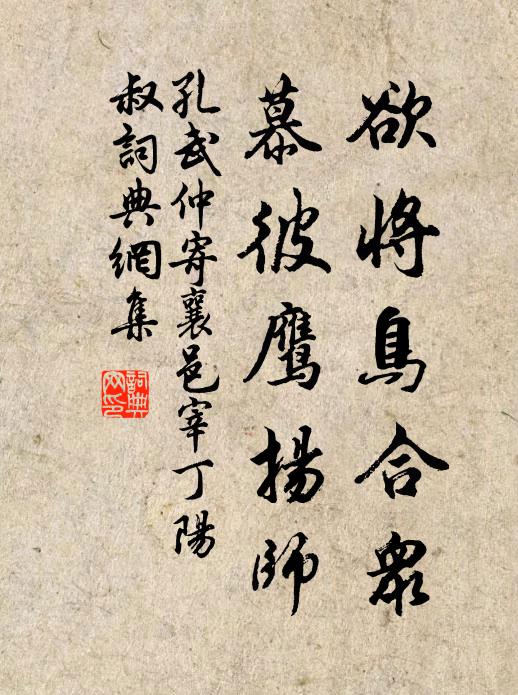 欲將烏合眾
慕彼鷹揚師
孔武仲寄襄邑宰丁陽
叔詞典網集
詞典
网印